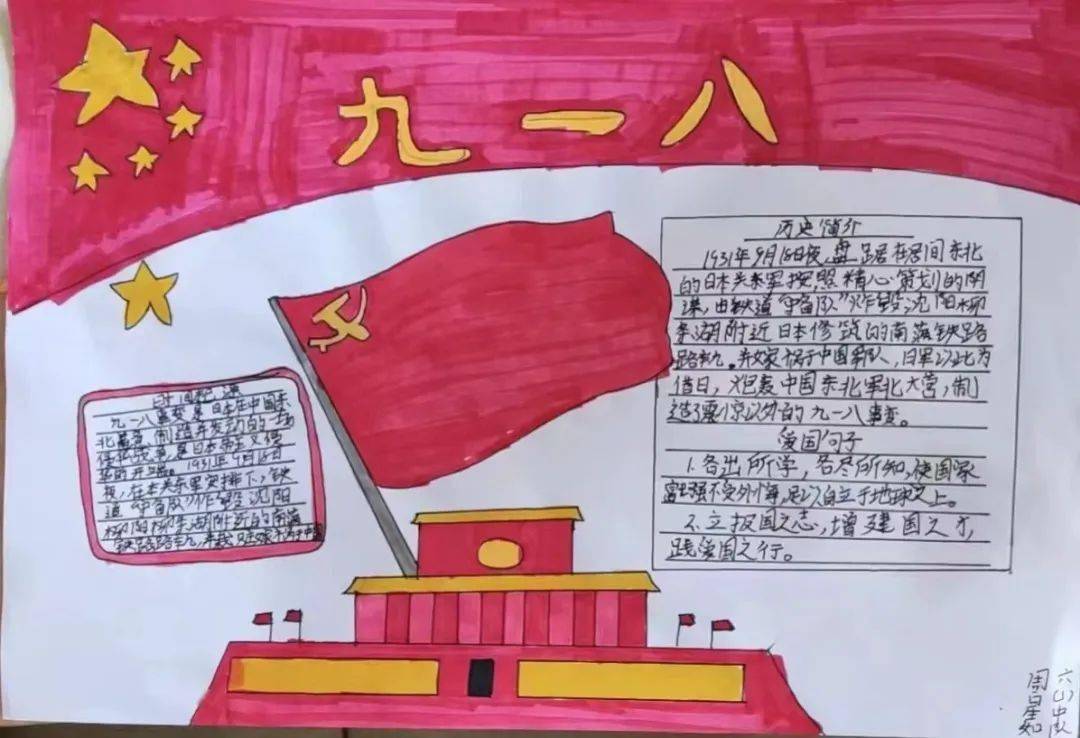 九一八
时间概述
九一八事变是日本在中国东
北蓄意制造并发动的一场
侵华战争,是日本帝国主义侵
华的开端。1931年9月18日
夜,在本关东军安排下,铁
道"守备队"炸毁沈阳
柳阳柳条湖附近的南满
铁路路轨,并栽赃嫁祸于中国
历史简介
1931年9月18日夜,盘踞在居间东北
的日本关东军按照精心策划的阴
谋,由铁道"守备队"炸毁沈阳柳
条湖附近日本修筑的南满铁路
路轨。并嫁祸于中国军队,日军以此为
借日,炮轰中国东北军北大营,制
造了震惊以外的九一八事变。
爱国句子
1.各出所学,各尽所知,使国家
富强不受外侮,足以自立于地球之上。
2.立报国之志,增建国之才,
践爱国之行。
六(1)中队
周星如